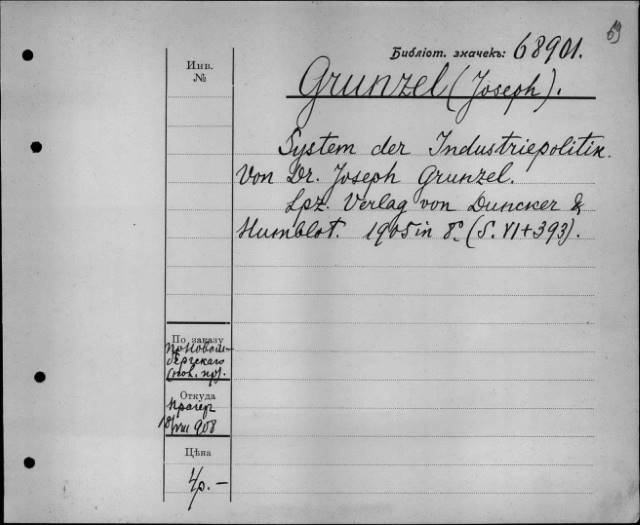 59
Библіот. значекъ: 68901.
Инв.
№
Grunzel (Joseph).
System der Industriepolitik.
Von Dr. Joseph Grunzel.
Lpz. Verlag von Duncker &
Humblot. 1905 in 8º. (S. VI+393).
По заказу
Откуда
Прагер
VIII 908
Цѣна
4р.-